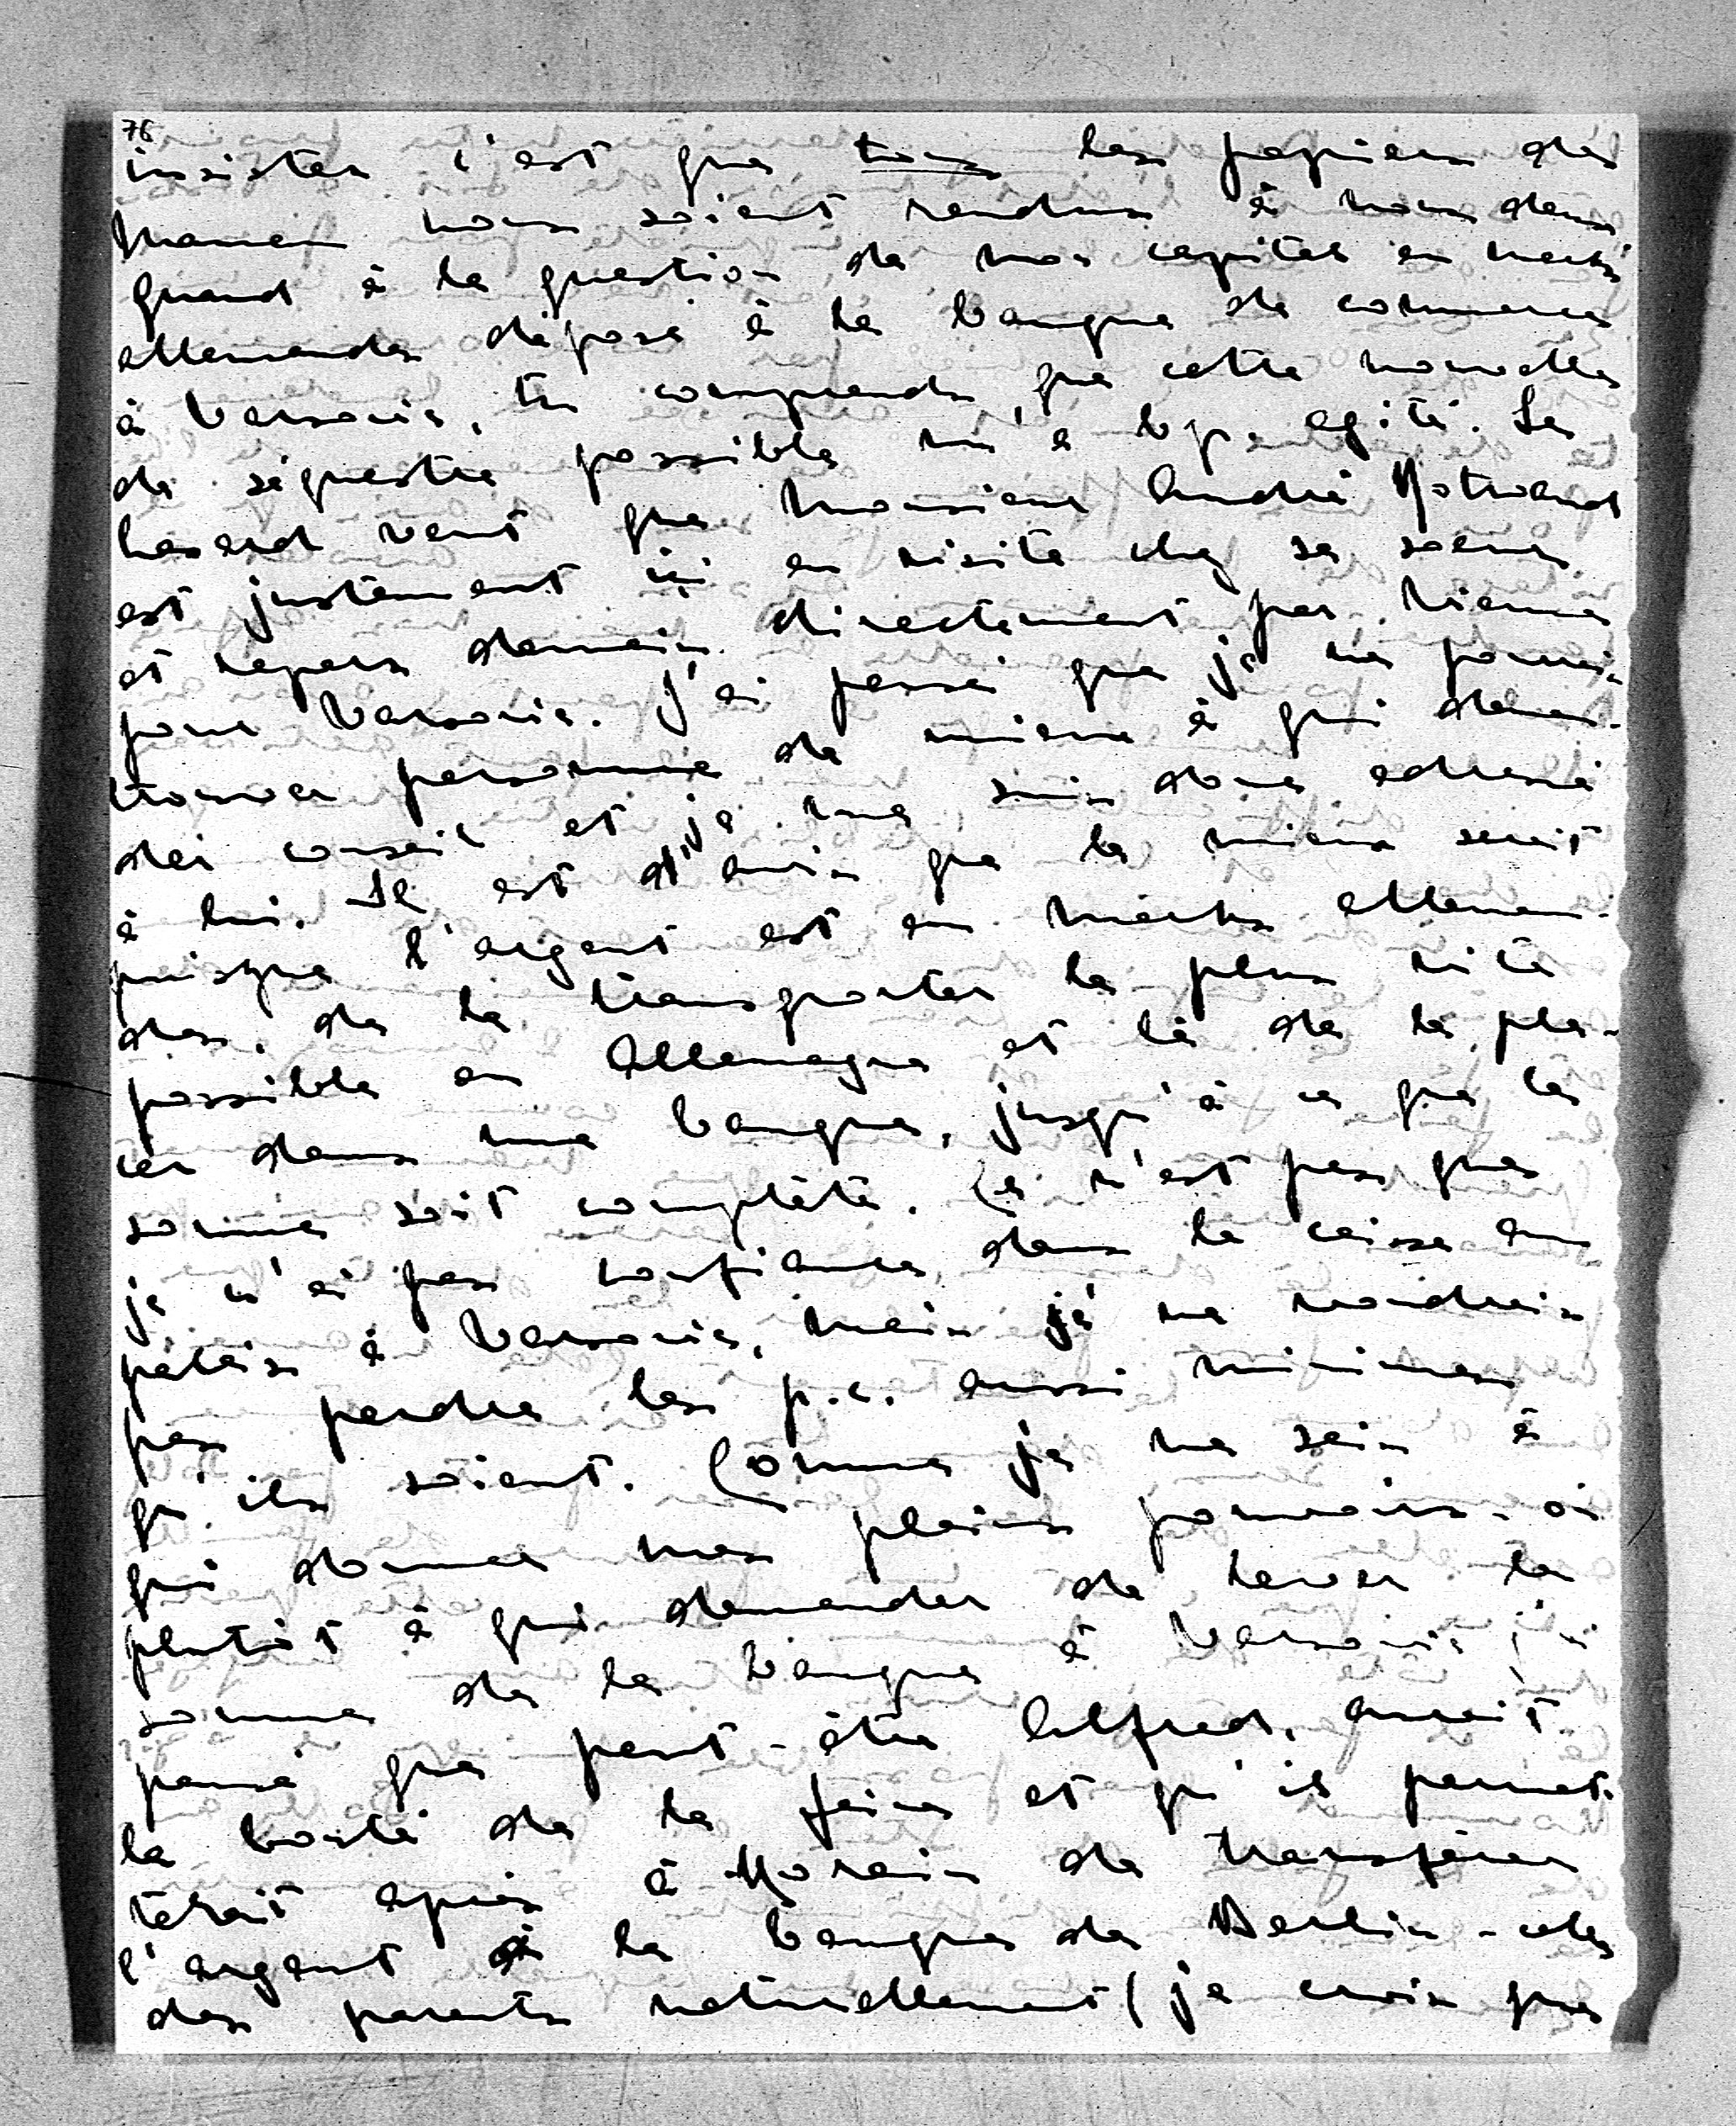 76
insister c'est que tous les papiers de
Maman nous soient rendus à nous deux.
Quand à la question de nos capitals en marks
allemandes déposé à la banque de commerce
à Varsovie, tu comprends, que cette nouvelle
de séquestre possible m'a bp. agité. Le
hasard veut que Monsieur André
est justement ici en visite chez sa soeur
et repars demain directement par Vienne
pour Varsovie. J'ai pensé que je ne pourrai
trouver personne de mieux à qui deman-
der conseil et je me suis donc adressé
à lui. Il est d'avis que le mieux serait
puisque l'argent est en marks alleman-
des, de le transporter le plus vite
possible en Allemagne et là de le pla-
cer dans une banque, jusqu'à ce que la
somme soit complète. Ce n'est pas que
je n'ai pas confiance dans la caisse au
palais à Varsovie, mais je ne voudrais
pas perdre les p.c. aussi minimes
qu'ils soient. Comme je ne sais à
qui donner mes pleins pouvoirs - où
plutôt à qui demander de lever la
somme de la banque à Varsovie j'ai
pensé que peut-être Alfred, aurait
la bonté de le faire et qu'il permet-
terait après à Morain de transférer
l'argent à la banque de Berlin - celle
des parents naturellement (je crois que